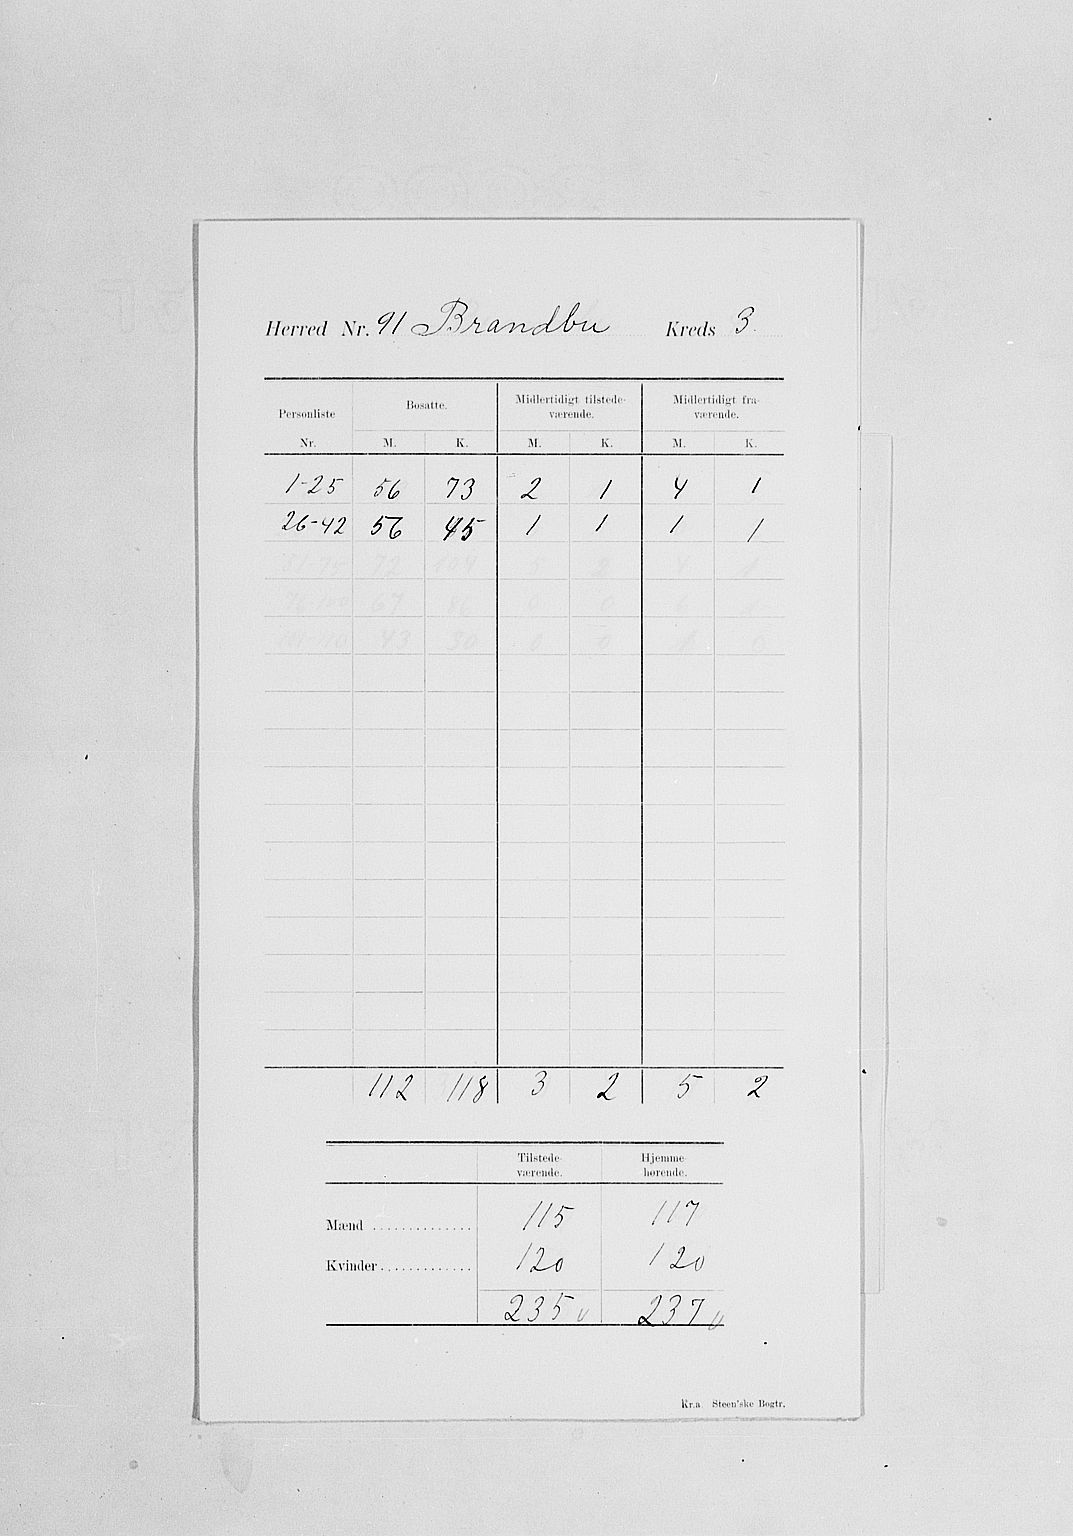 Herred Nr. 91 Brandbu Kreds 3.
Personliste Bosatte. Midlertidigt tilstede- Midlertidigt fra-
værende. værende.
Nr. M. K. M. K. M. K.
1-25 56 73 2 1 4 1
26-42 56 45 1 1 1 1
112 118 3 2 5 2
Tilstede- Hjemme-
værende. hørende.
Mænd .............. 115 117
Kvinder............. 120 120
235 237
Kr.a Steen'ske Bogtr.